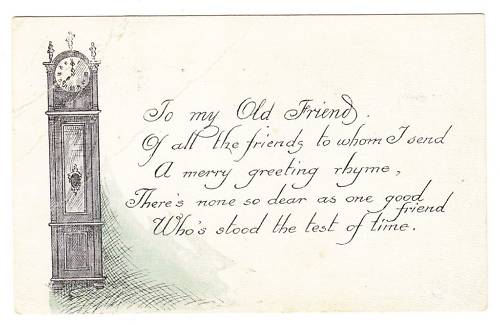 To my Old Friend.
Of all the friends to whom I send
A merry greeting rhyme,
There's none so dear as one good friend
Who's stood the test of time.